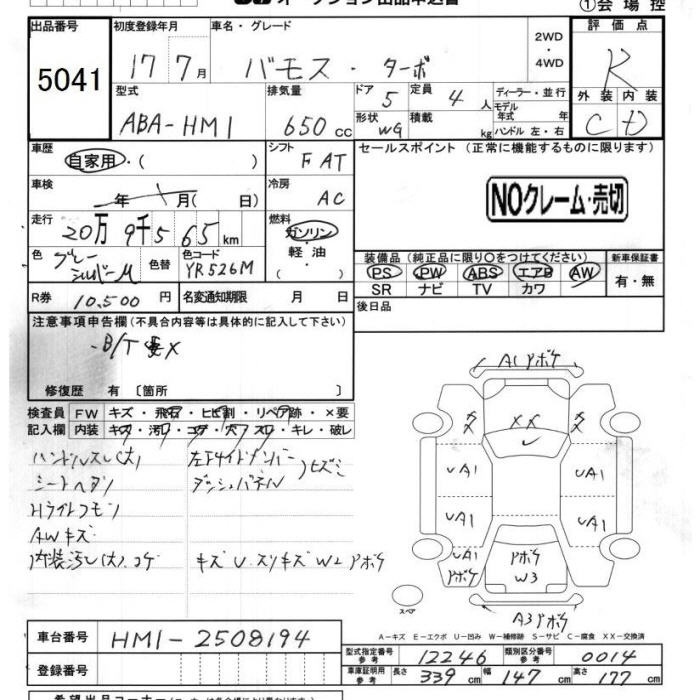 ①会場控
出品番号 初度登録年月 車名・グレード 2WD ・ 4WD 評価点
5041 17年 7月 バモス・ターボ R
型式 排気量 ドア 定員 ディーラー・並行 外装 内装
ABA-HM1 650cc 5 4人 モデル年式 年 C D
形状 WG 積載 kg ハンドル 左・右
車歴 自家用・( ) シフト FAT セールスポイント (正常に機能するものに限ります)
車検 年 月(日) 冷房 AC NOクレーム・売切
走行 20万9千565km 燃料 ガソリン・軽油
色 グレー シルバーM 色替 色コード YR526M ( ) 装備品 (純正品に限り○をつけてください) 新車保証書
PS PW ABS エアB AW 有・無
SR ナビ TV カワ
R券 10,500円 名変通知期限 月 日 後日品
注意事項申告欄 (不具合内容等は具体的に記入して下さい)
B/T X
修復歴 有 [箇所 ]
検査員 FW キズ・飛石・ヒビ割・リペア跡・×要
記入欄 内装 キズ・汚レ・コゲ・穴・スレ・キレ・破レ
ハンドルスレ(大) 左Fサイドメンバー
シートヘタリ ダッシュパネル ヒズミ
Hライトクモリ
AWキズ
内装汚レ(大).コゲ キズ U スリキズ W2 Pボケ
A1Pボケ
XX
UA1 UA1
UA1 UA1
UA1 Pボケ
Pボケ W3
スペア
A3Pボケ
A-キズ E-エクボ U-凹み W-補修跡 S-サビ C-腐食 XX-交換済
車台番号 HM1-2508194
登録番号
型式指定番号 参考 12246 類別区分番号 参考 0014
車庫証明用 参考 長さ 339cm 幅 147cm 高さ 177cm